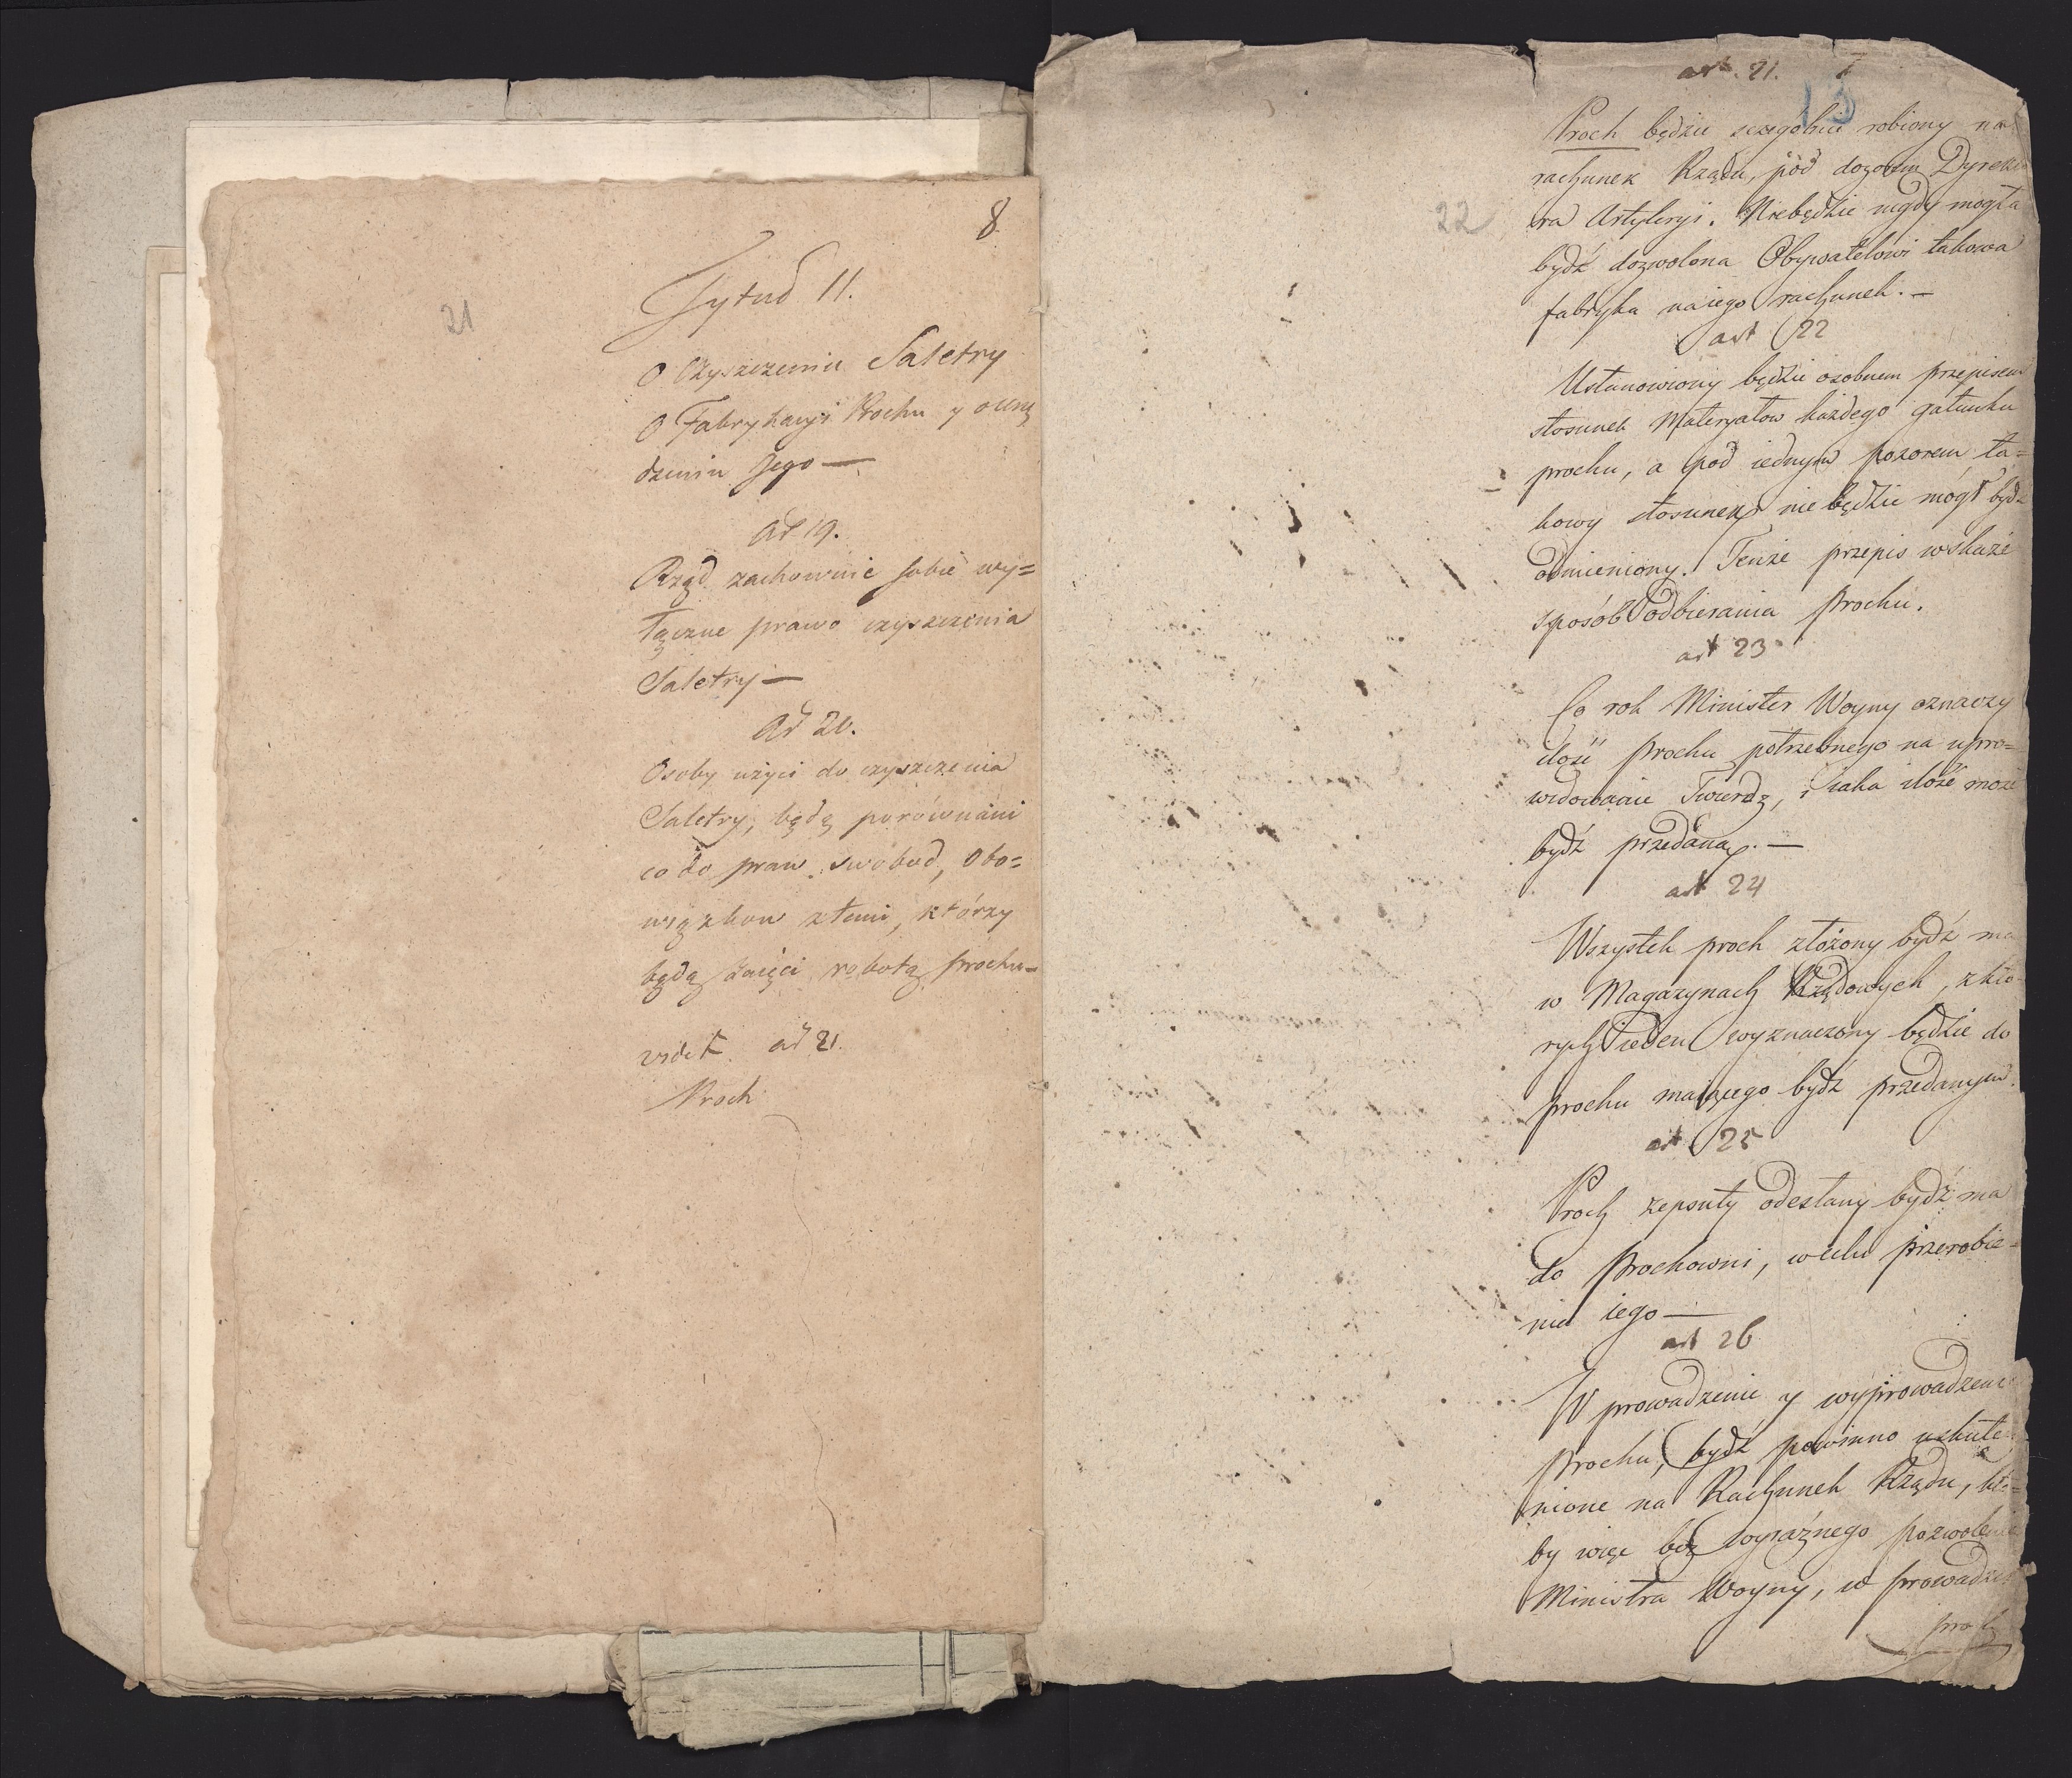 8.
21
Tytuł II.
O Czyszczeniu Saletry
O Fabrykacyi Prochu y o urzą
dzeniu Jego —
Ar 19.
Rząd zachowuie sobie wy=
łączne prawo czyszczenia
Saletry —
Ar 20.
Osoby użyci do czyszczenia
Saletry, będą porównani
co do praw swobod, obo=
wiązkow z temi, którzy
będą zaięci robotą prochu —
videt ar 21.
Proch
art. 21. 7
13
22
Proch będzie sczegolnie robiony na
rachunek Rządu, pod dozorem Dyrekto
ra Artyleryi. Niebędzie nigdy mogła
bydź dozwolona Obywatelowi takowa
fabryka na iego rachunek. —
art 22
Ustanowiony będzie osobnem przepisem
stosunek Materyałow każdego gatunku
prochu, a pod iednym pozorem ta=
kowy stosunek nie będzie mógł bydź
odmieniony. Tenże przepis wskaże
sposób odbierania Prochu.
art 23
Co rok Minister Woyny oznaczy
ilość Prochu potrzebnego na upro=
widowanie Twierdz, i iaka ilość może
bydź przedana. —
art 24
Wszystek proch złożony bydź ma
w Magazynach Rządowych, z kto
rych ieden wyznaczony będzie do
prochu maiącego bydź przedanym.
art 25
Proch zepsuty odesłany bydź ma
do Prochowni, w celu przerobie=
nia iego —
art 26
Wprowadzenie y wyprowadzenie
Prochu, bydź powinno uskute
cznione na Rachunek Rządu, kto=
by więc bez wyraźnego pozwolenia
Ministra Woyny, wprowadzał
proch